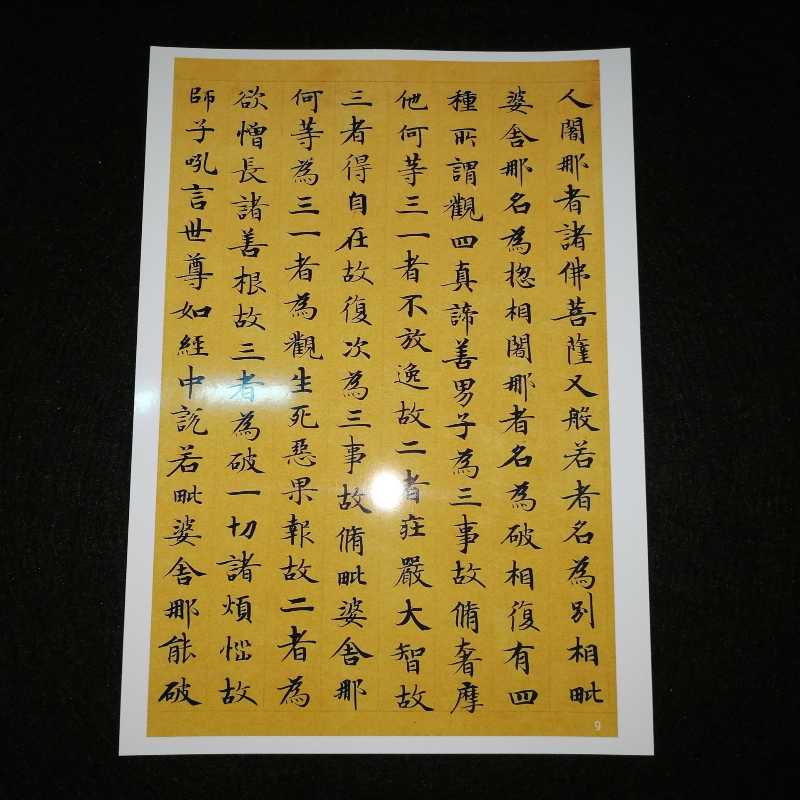 人闍那者諸佛菩薩又般若者名為別相毗
婆舍那名為揔相闍那者名為破相復有四
種所謂觀四真諦善男子為三事故脩奢摩
他何等三一者不放逸故二者莊嚴大智故
三者得自在故復次為三事故脩毗婆舍那
何等為三一者為觀生死惡果報故二者為
欲憎長諸善根故三者為破一切諸煩惱故
師子吼言世尊如經中說若毗婆舍那能破
9